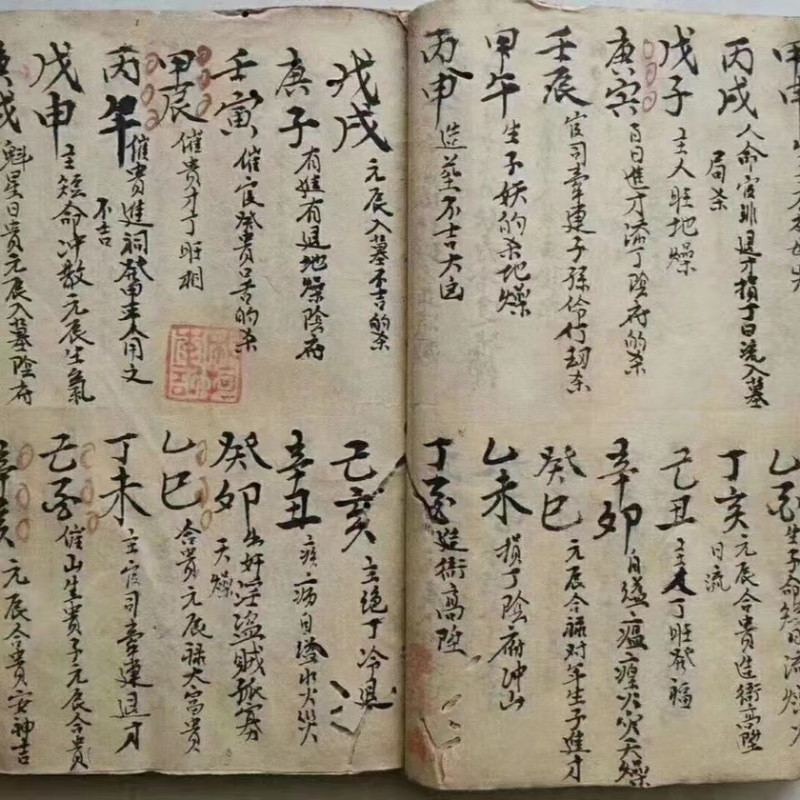 甲申
丙戌 人命官非退才損丁日流入墓
局杀
戊子 主人旺地燥
庚寅 百日進才添丁陰府的杀
壬辰 官司牽連子孫伶仃劫杀
甲午 生子妖的杀地燥
丙申 造墓不吉大凶
丁亥 元辰合貴進衙高陞
日流
己丑 主人丁旺發福
辛卯 自縊瘟瘟火灾天燥
癸巳 元辰合祿对年生子進才
乙未 損丁陰府冲山
丁酉 進衙高陞
戊戌 元辰入墓不吉的杀
庚子 有進有退地燥陰府
壬寅 催官發貴口舌的杀
甲辰 催貴才丁旺相
丙午 催貴進祠發富主人用之
不吉
戊申 主短命冲敗元辰生氣
庚戌 魁星日貴元辰入墓陰府
己亥 主绝丁冷退
辛丑 疾病自墜水火災
癸卯 出奸淫盜賊孤寡
天燥
乙巳 合貴元辰祿大富貴
丁未 主官司牽連退才
己酉 催山生貴子元辰合貴
辛亥 元辰合貴安神吉